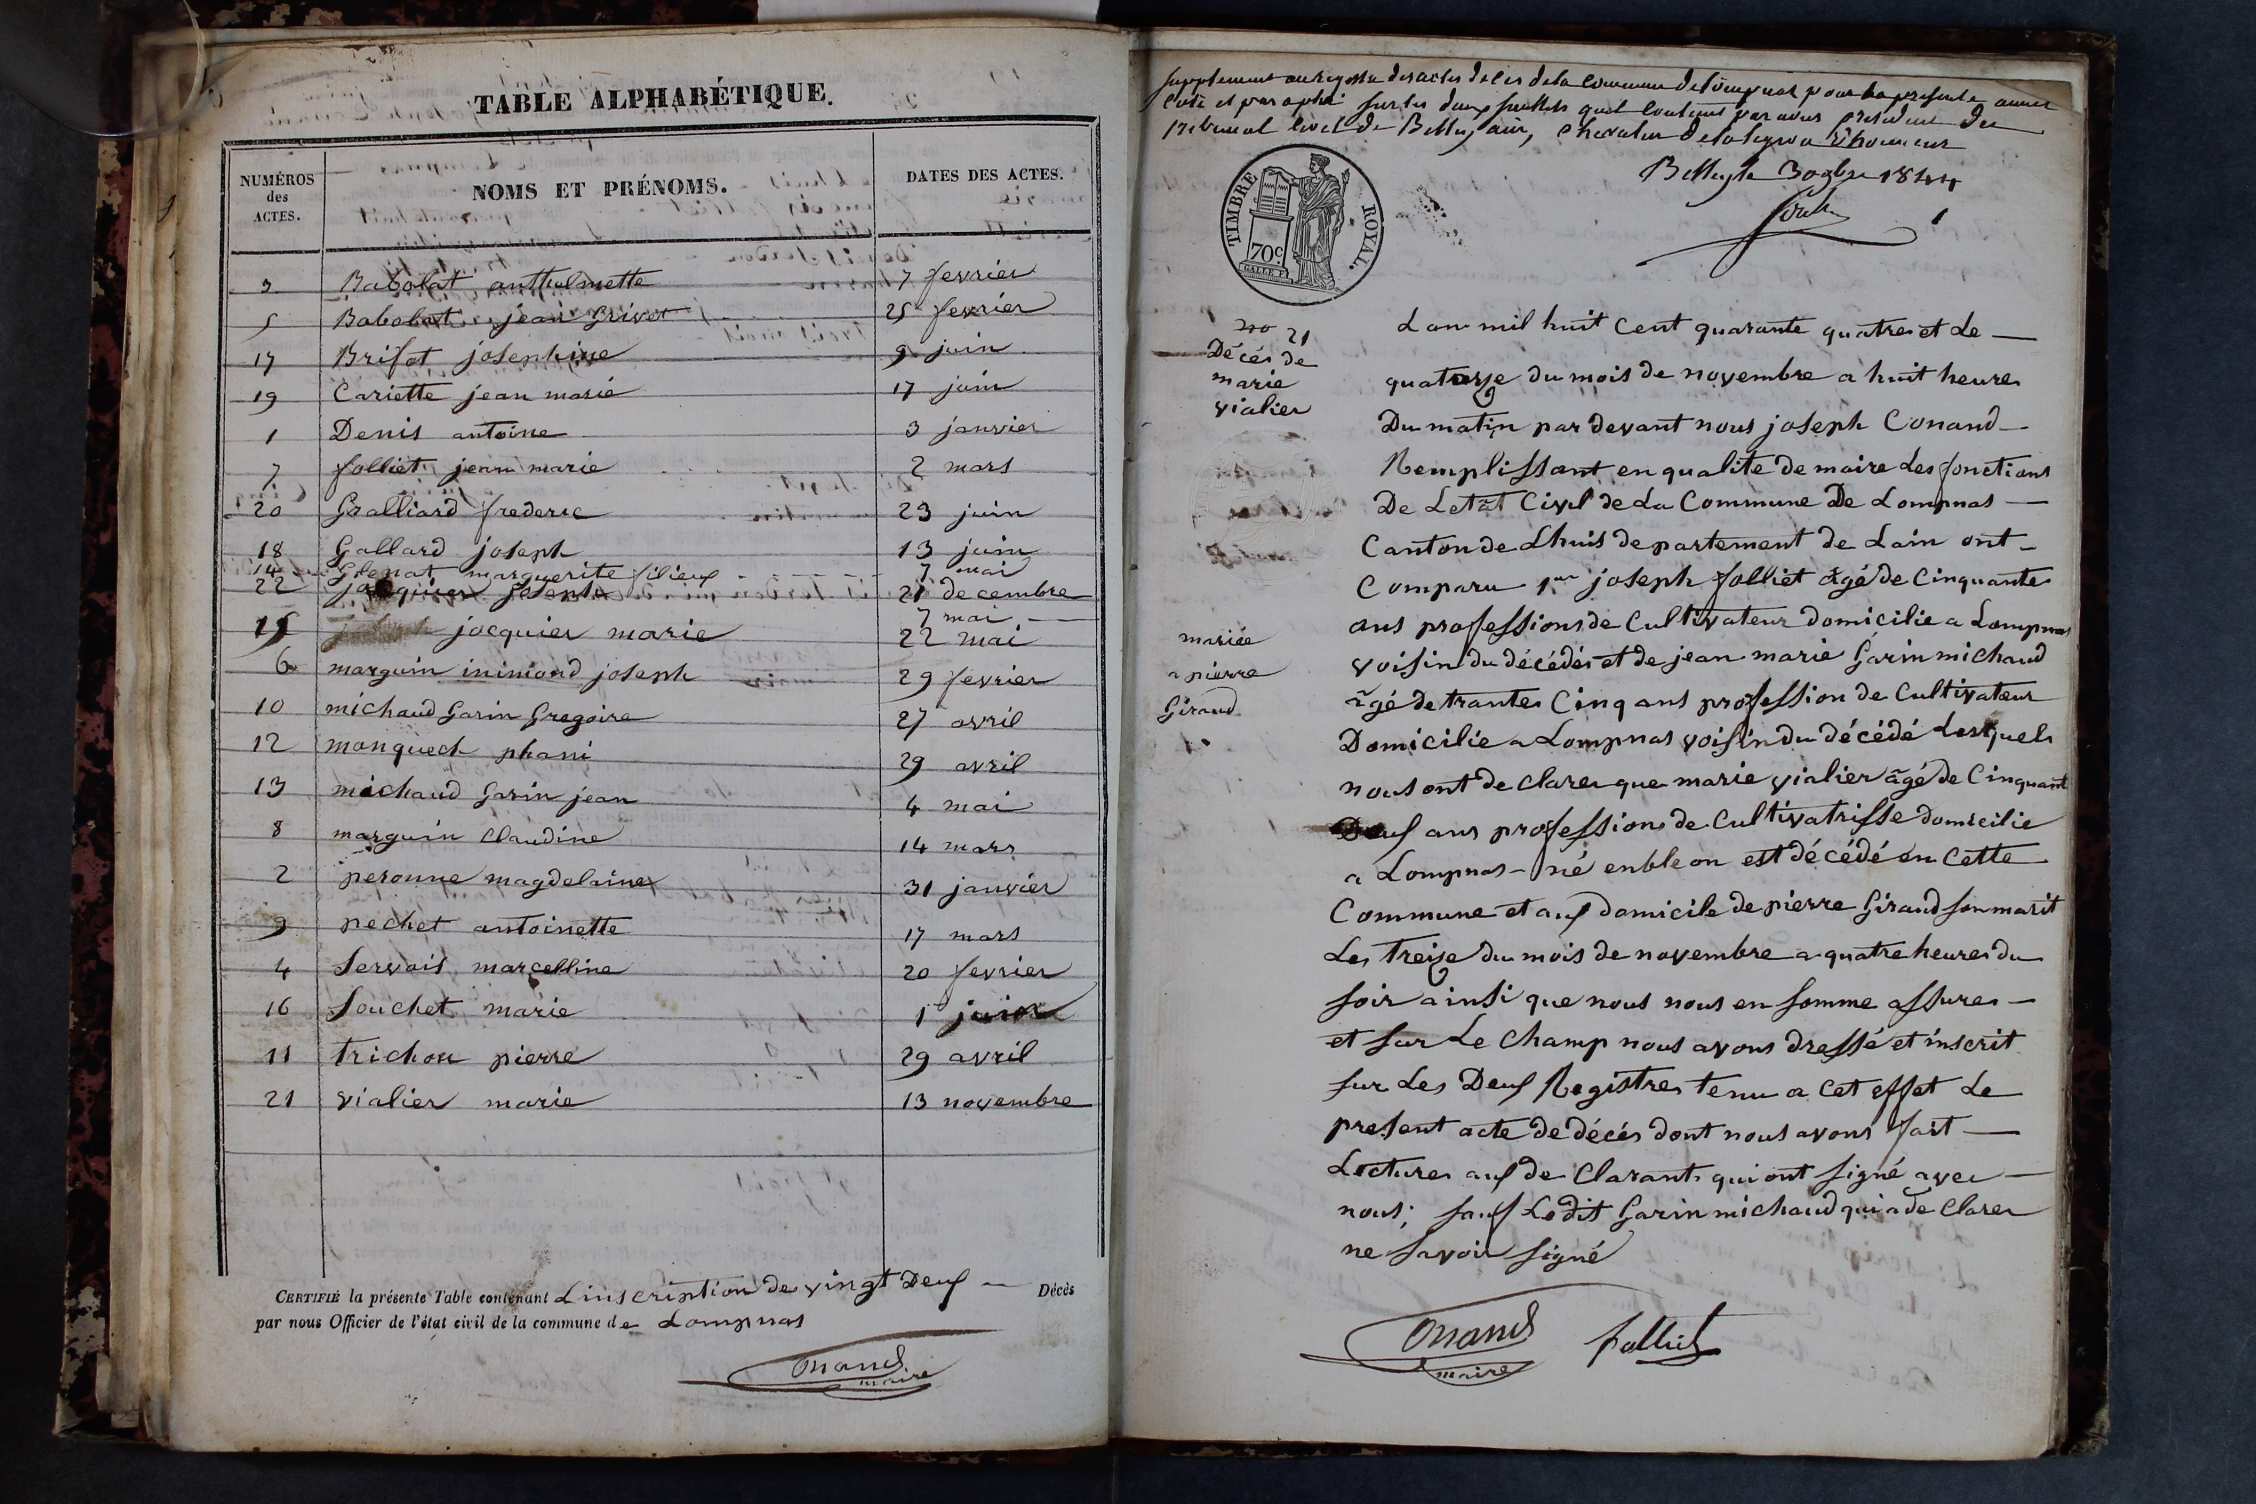 TABLE ALPHABÉTIQUE.
NUMÉROS des ACTES. NOMS ET PRÉNOMS. DATES DES ACTES.
3 Babolat anthelmette 7 fevrier
5 Babolat jean Grivet 25 fevrier
17 Brifat josephine 9 juin
19 Cariette jean marie 17 juin
1 Denis antoine 3 janvier
7 folliet jean marie 2 mars
20 Gralliard frederic 23 juin
18 Gallard joseph 13 juin
14 Grenat marguerite filieux 7 mai
22 jacquier joseph 21 decembre
7 mai
15 jocquier marie 22 mai
6 marguin inimond joseph 29 fevrier
10 michaud Garin Gregoire 27 avril
12 monquech phani 29 avril
13 michaud Garin jean 4 mai
8 marguin Claudine 14 mars
2 peronne magdelaine 31 janvier
9 pechet antoinette 17 mars
4 Servais marcelline 20 fevrier
16 Souchet marie 1 juin
11 Trichon pierre 29 avril
21 vialier marie 13 novembre
CERTIFIÉ la présente Table contenant Linscription de vingt Deux Décès
par nous Officier de l'état civil de la commune de Lompnas
Conand
maire
Supplement au Registre des actes de la Commune de Lompnas pour la presente annee
Coté et paraphé sur les deux feuillets quil contient par nous president du
Tribunal Civil de Belley, ain, Chevalier de la legion d'honneur
Belley le 30 9bre 1844
1
TIMBRE ROYAL.
70c
no 21
Décés de
marie
vialier
Lan mil huit Cent quarante quatre et Le
quatorze du mois de novembre a huit heure
Du matin par devant nous joseph Conand
Remplissant en qualite de maire Les fonctions
De Letat Civil de La Commune De Lompnas
Canton de Lhuis departement de Lain ont
Comparu 1er joseph folliet âgé de Cinquante
ans profession de Cultivateur domicilie a Lompnas
voisin du décédés et de jean marie Garin michaud
âgé de trante Cinq ans profession de Cultivateur
Domicilie a Lompnas voisin du décédé Lesquels
nous ont de clarer que marie vialier âgé de Cinquant
Deux ans profession de Cultivatrisse domicilie
a Lompnas né en bleon est décédé en Cette
Commune et aux domicile de pierre Giraud son marit
Le Treize du mois de novembre a quatre heure du
soir ainsi que nous nous en somme assure
et sur Le Champ nous avons dressé et inscrit
sur Les Deux Registre tenu a Cet effet Le
present acte de décés dont nous avons fait
Lecture aux de Clarant qui ont signé avec
nous; sauf Le dit Garin michaud qui a de Clarer
ne savoir signé
mariée
a pierre
Giraud
Conand
maire
folliet